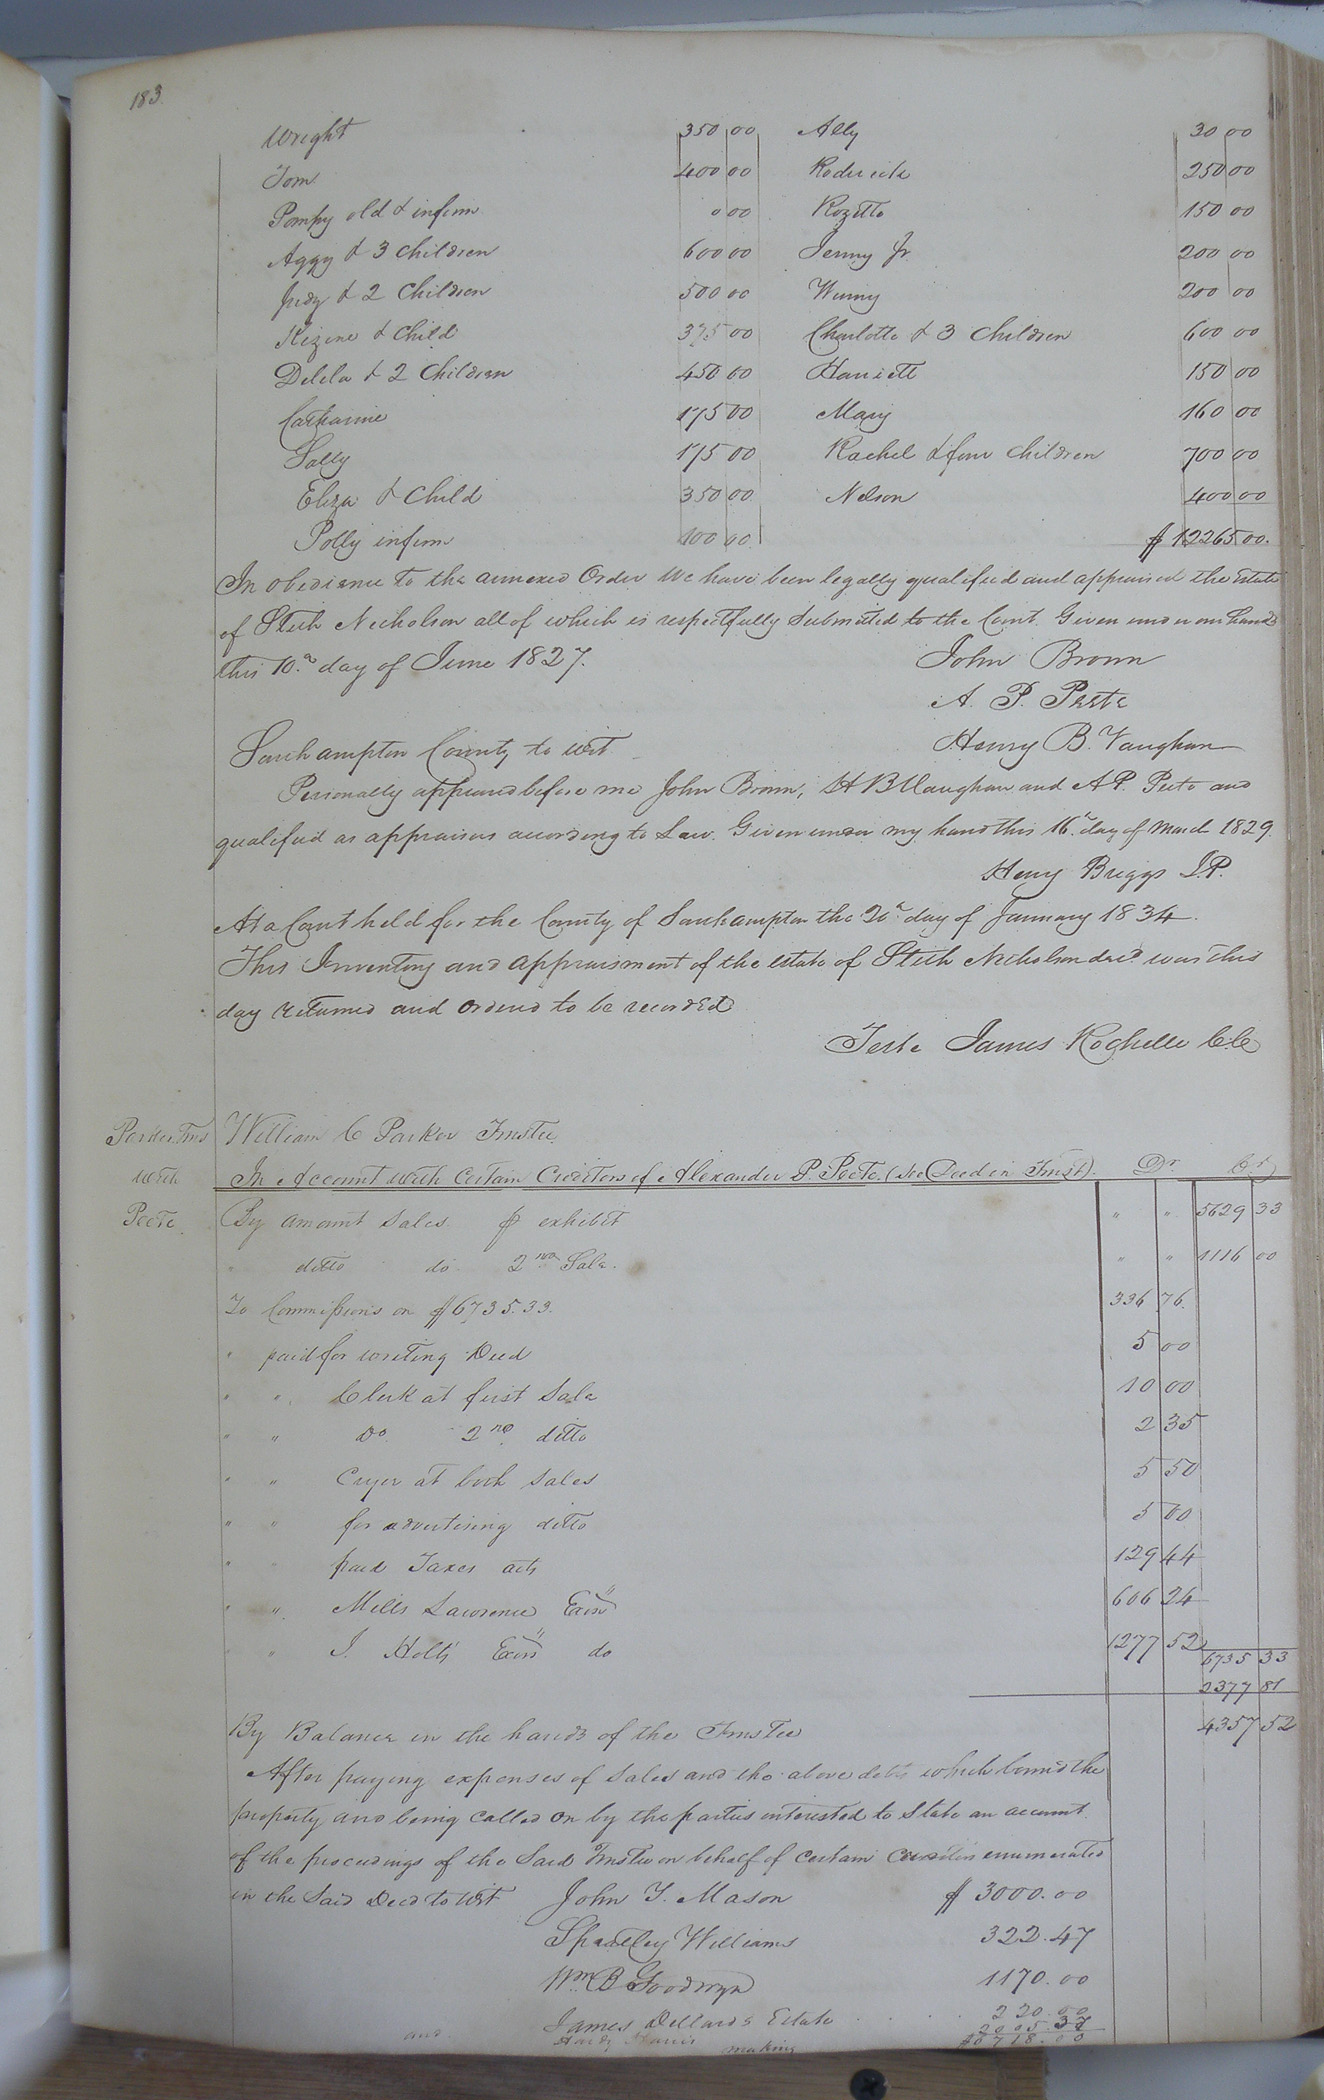 183.
Wright 350 00 Ally 30 00
Tom 400 00 Roderick 250 00
Pompy old & infirm 0 00 Rozetta 150 00
Aggy & 3 Children 600 00 Jenny Jr. 200 00
Judy & 2 Children 500 00 Winny 200 00
Kizine & Child 375 00 Charlotte & 3 Children 600 00
Delila & 2 Children 450 00 Harriett 150 00
Catharine 175 00 Mary 160 00
Sally 175 00 Rachel & four children 700 00
Eliza & Child 350 00 Nelson 400 00
Polly infirm 100 00 $12265 00.
In obedience to the annexed Order We have been legally qualified and appraised the Estate
of Nicholson all of which is respectfully Submitted to the Court. Given under our hands
this 10.th day of June 1827.
John Brown
A. P. Peete
Henry B. Vaughan
Southampton County to wit
Personally appeared before me John Brown, H B Vaughan and A P. Peete and
qualified as appraisers according to Law. Given under my hand this 16.th day of March 1829.
Henry Briggs J.P.
At a Court held for the County of Southampton the 20th day of January 1834.
This Inventory and appraisment of the estate of Nicholson decd was this
day returned and ordered to be recorded
Teste James Rochelle C.C.
Parker Trus
with
Peete.
William C Parker Trustee.
In Account with Certain Creditors of Alexander P. Peete. (see Deed in Trust). Dr. Cr.
By amount Sales. pr exhibit " " 5629 33
" ditto do 2nd Sale. " " 1116 00
To Commissions on $6735.33. 336 76.
" paid for writing Deed 5 00
" " Clerk at first Sale 10 00
" " Do. 2nd ditto 2 35
" " Cryer at both Sales 5 50
" " for advertising ditto 5 00
" paid Taxes 129 44
" " Mills Lawrence Exon 606 24
" " J. Holts Exors do 1277 52
6735 33
2377 81
By Balance in the hands of the Trustee 4357 52
After paying expenses of Sales and the above debts which bound the
property and being called on by the parties interested to State an account.
of the proceedings of the Said Trustee on behalf of certain Creditors enumerated
in the Said Deed to Wit John Y. Mason $3000.00
Williams 322.47
Wm. B Goodwyn 1170.00
James Dellards Estate 220.00
and Hardy Harris 2005 37
making $6718.00